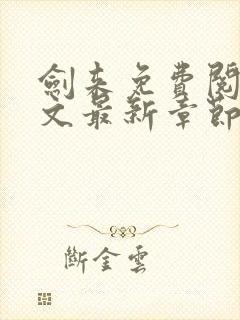 劍来免費閱
文最新章節
斷金雲